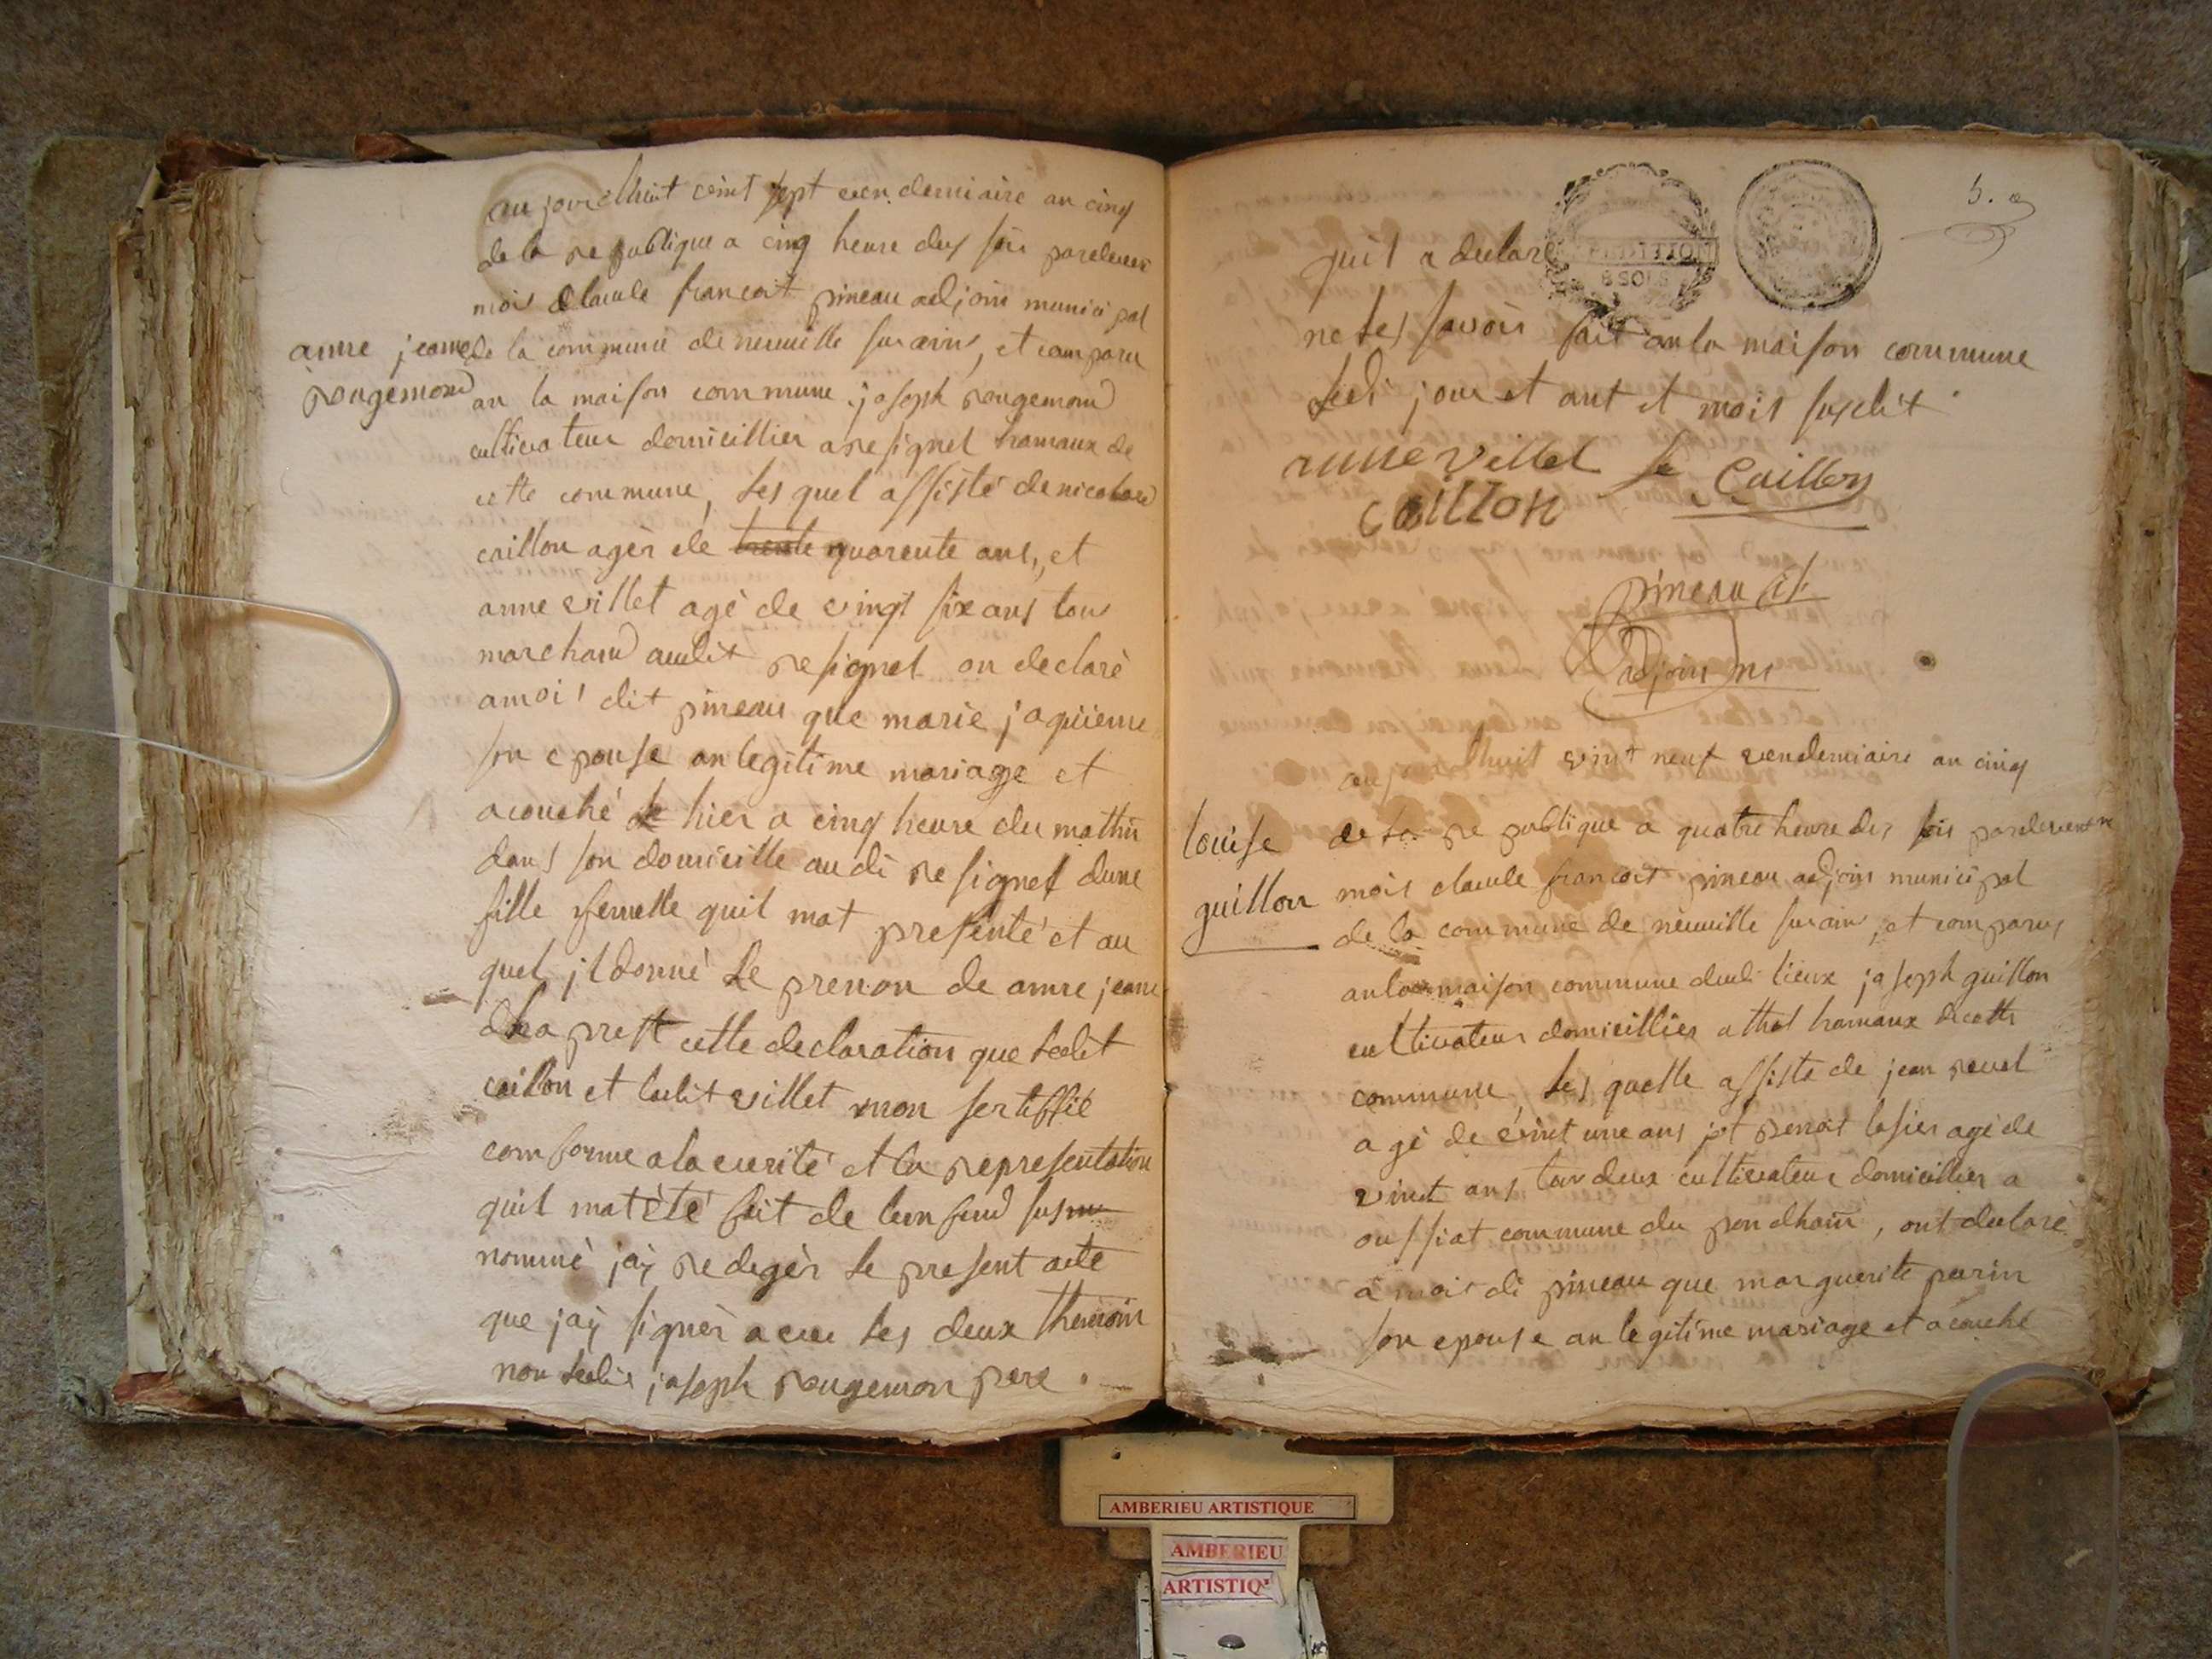 anne jeanne
rougemond
au jourdhuit veint sept vendemiaire an cinq
de la republique a cinq heure dus soir pardevens
mois claude francoit pineau adjoin munici pal
de la commune de neuville sur ains, et comparu
an la maison commune joseph rougemond
cultivateur domicillier a resignel hamaux de
cette commune, les quel assisté de nicolard
caillon agèr de trente quarente ans, et
anne villet agè de vingt six ans tous
marchand audit resignel on declarè
amois dit pineau que marie jaquieme
son epouse an legitime mariage et
acouché de hier a cinq heure du mathin
dans son domicille au di resignel dune
fille femelle quil mat presenté et au
quel jl donné le prenon de anne jeanne
da prest cette declaration que ledit
caillon et ladit villet mon sertiffié
comforme a la verité et la representation
quil mat été fait de lenfend susm
nommé jaÿ redegèr le present acte
que jaÿ signèr avec les deux themoin
non ledis joseph rougemon pere .
5.
quil a declare
8 SOLS
ne les savoir fait an la maison commune
ledi jour et ant et mois susdit
anne villet Caillon
caillon
pineau
adjoins
louise
guillon
huit vint neuf vendemiaire an cinq
de la re publique a quatre heure des soir pardevens
mois claude francoit pineau adjoin munici pal
de la commune de neuville sur ain, et comparus
an la maison commune dudi lieux joseph guillon
cultivateur domicillier a thol hamaux de cette
commune, les quelle assiste de jean revel
agé de veint une ans et benoit lasier agé de
vint ans tou deux cultivateur domicillier a
oussiat commune du pon dhain, ont declaré
a mois di pineau que marguerite perin
son epouse an legitime mariage et acouché
AMBERIEU ARTISTIQUE
AMBERIEU
ARTISTIQ